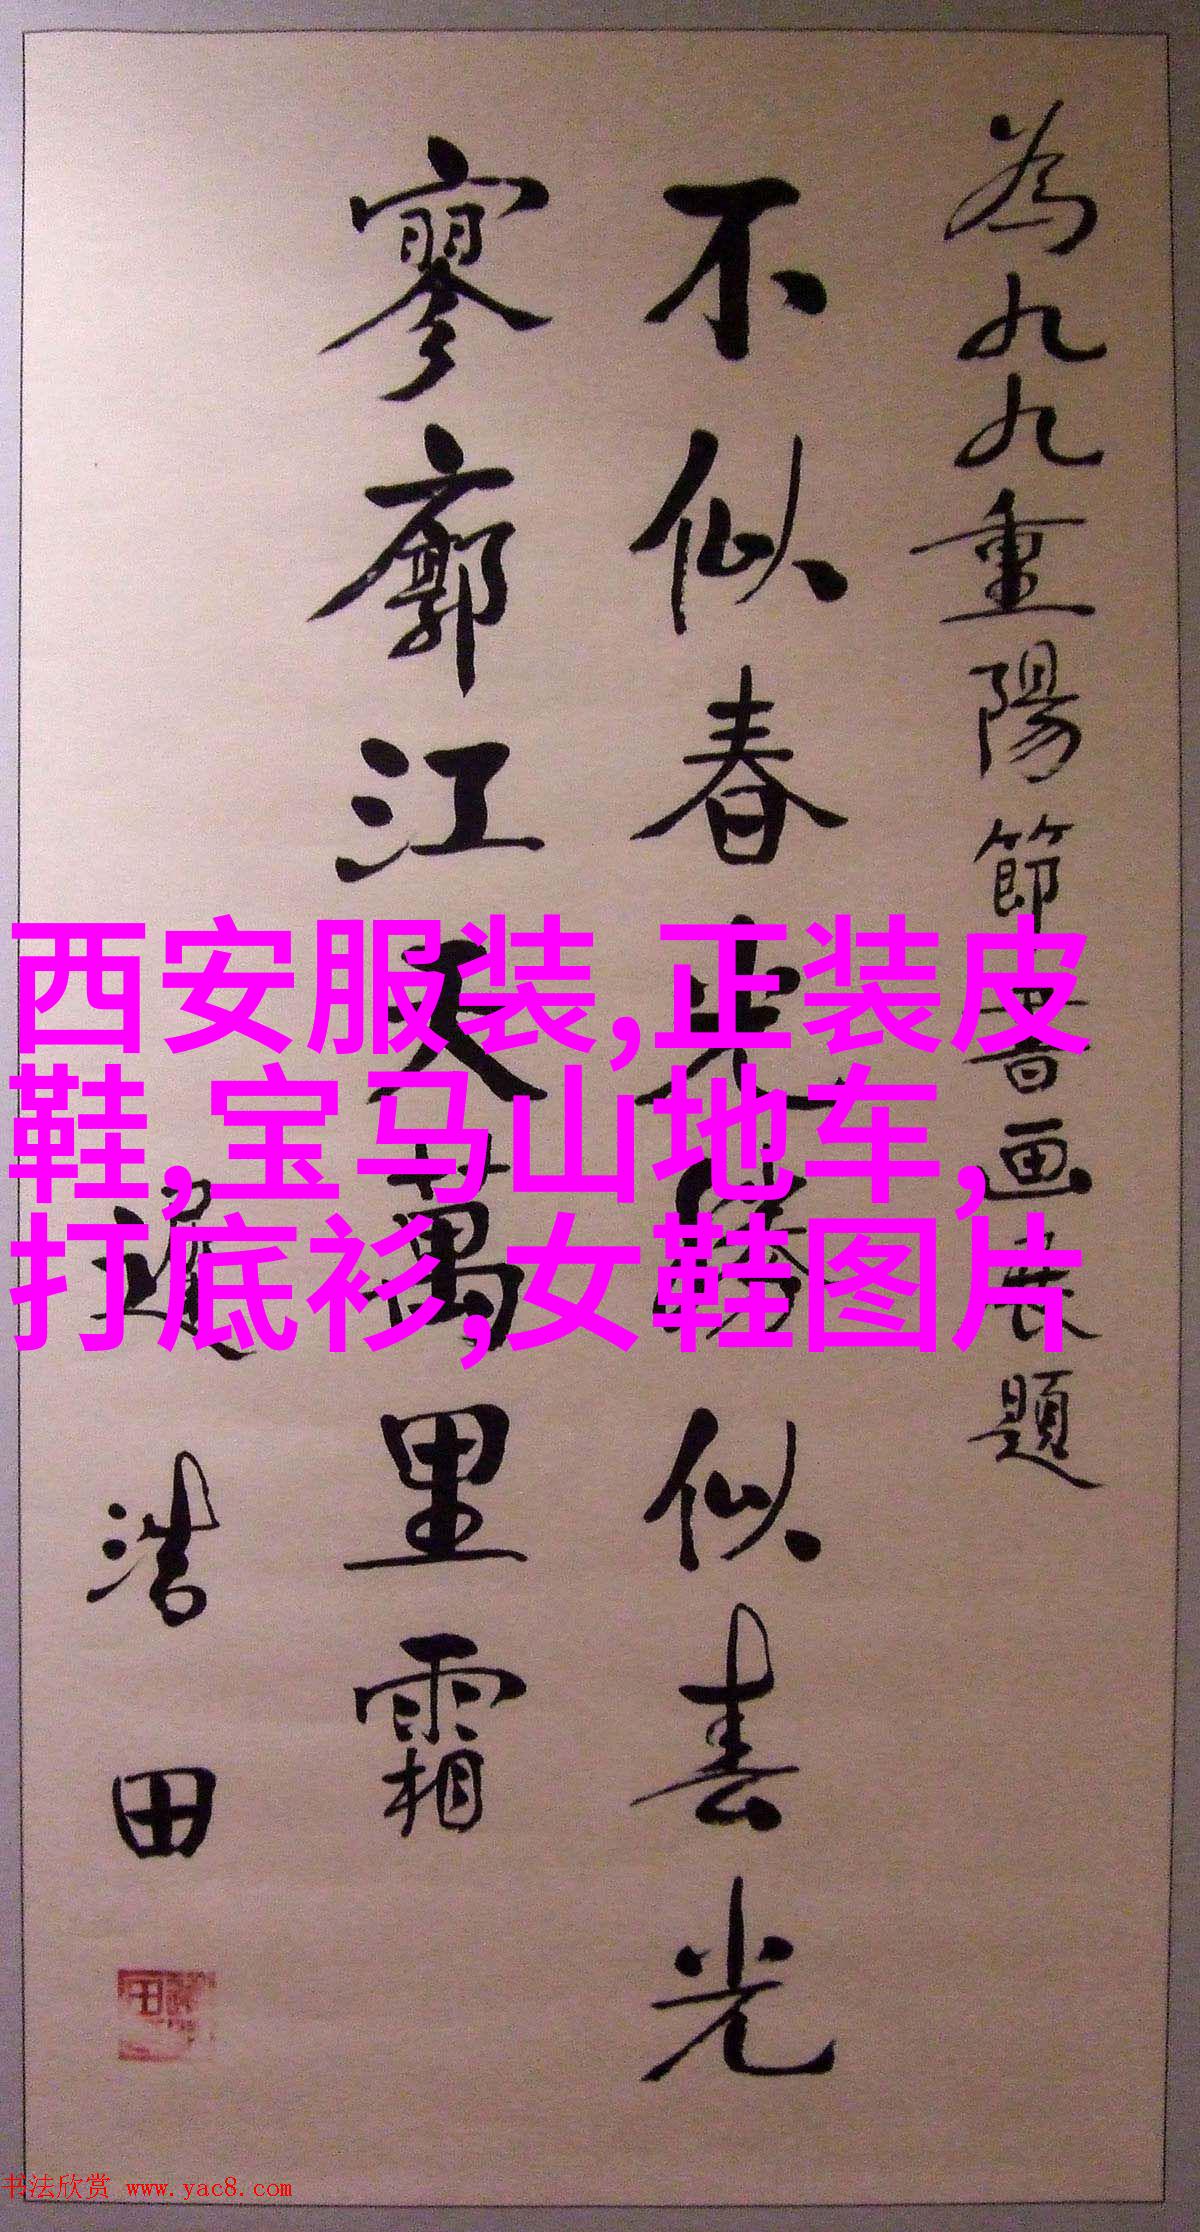 為九九重陽節書画展題
不似春光勝似春光
寥廓江天萬里霜
浩田
西安服装,正装皮
鞋,宝马山地车,
打底衫,女鞋图片
书法欣赏 www.yac8.com